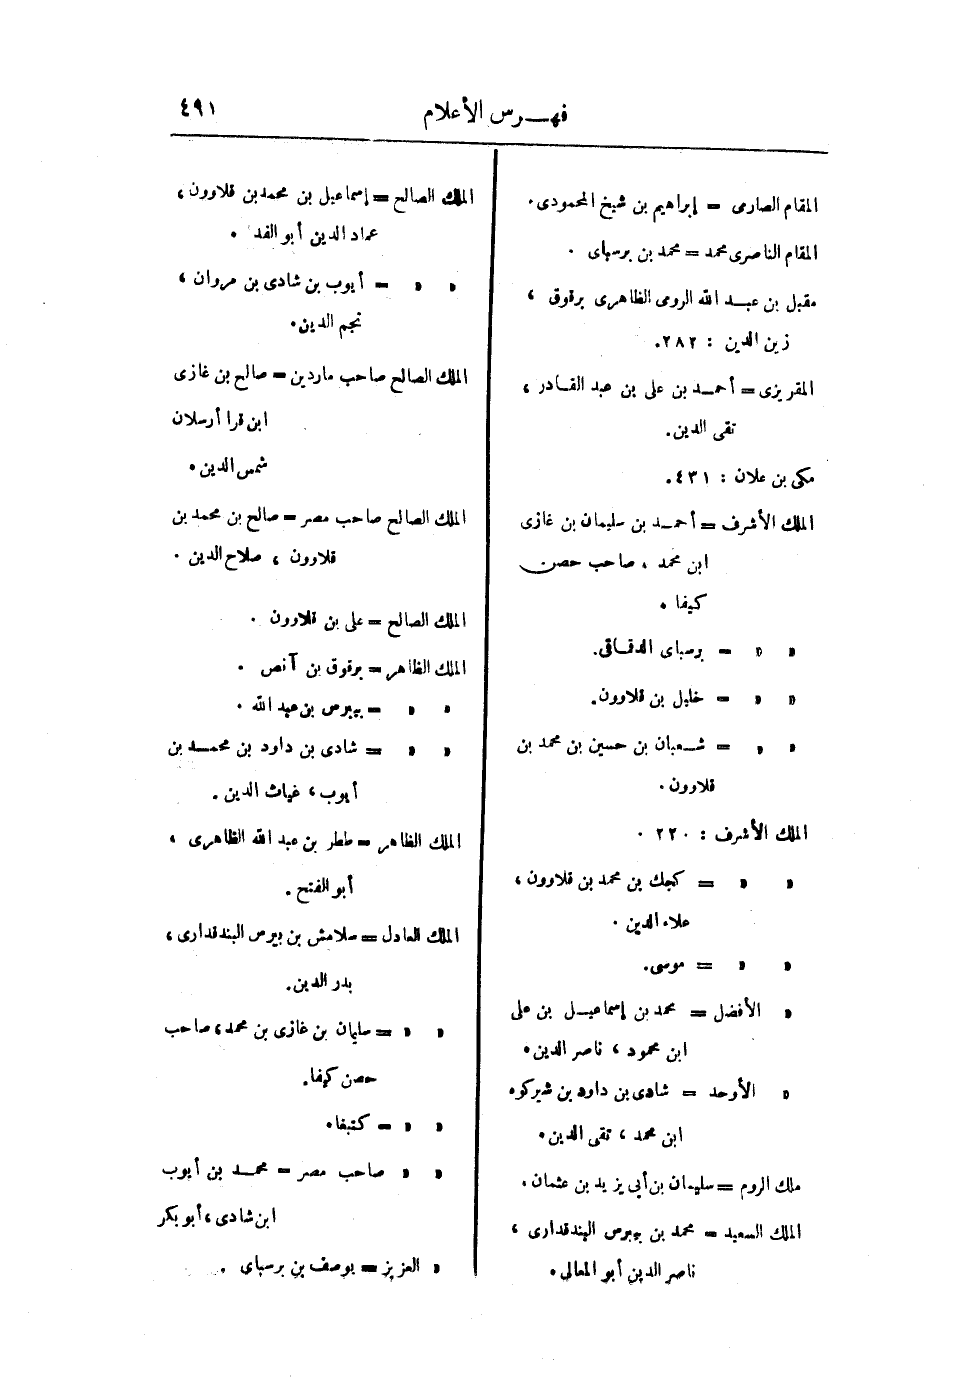 فهرس الأعلام
٤٩١
المقام الصارمى = إبراهيم بن شيخ المحمودى.
المقام الناصرى محمد = محمد بن برسباى .
مقبل بن عبد الله الرومى الظاهرى برقوق ،
زين الدين : ٢٨٢.
المقريزى = أحمد بن على بن عبد القادر ،
تقى الدين.
مكى بن علان : ٤٣١.
الملك الأشرف = أحمد بن سليمان بن غازى
ابن محمد ، صاحب حصن
كيفا .
» » = برسباى الدقماقى.
» » = خليل بن قلاوون.
» » = شعبان بن حسين بن محمد بن
قلاوون.
الملك الأشرف : ٢٢٠ .
» » = كجك بن محمد بن قلاوون ،
علاء الدين .
» » = موسى.
» الأفضل = محمد بن إسماعيل بن على
ابن محمود ، ناصر الدين.
» الأوحد = شادى بن داود بن شيركوه
ابن محمد ، تقى الدين.
ملك الروم = سليمان بن أبى يزيد بن عثمان .
الملك السعيد = محمد بن بيبرس البندقدارى ،
ناصر الدين أبو المعالى.
الملك الصالح = إسماعيل بن محمد بن قلاوون ،
عماد الدين أبو الفدا .
» » = أيوب بن شادى بن مروان ،
نجم الدين.
الملك الصالح صاحب ماردين = صالح بن غازى
ابن قرا أرسلان
شمس الدين.
الملك الصالح صاحب مصر = صالح بن محمد بن
قلاوون ، صلاح الدين .
الملك الصالح = على بن قلاوون .
الملك الظاهر = برقوق بن آنص .
» » = بيبرس بن عبد الله .
» » = شادى بن داود بن محمد بن
أيوب ، غياث الدين .
الملك الظاهر = ططر بن عبد الله الظاهرى ،
أبو الفتح .
الملك العادل = سلامش بن بيبرس البندقدارى ،
بدر الدين.
» » = سليمان بن غازى بن محمد ، صاحب
حصن كيفا.
» » = كتبغا.
» » صاحب مصر = محمد بن أيوب
ابن شادى ، أبو بكر
» العزيز = يوسف بن برسباى .